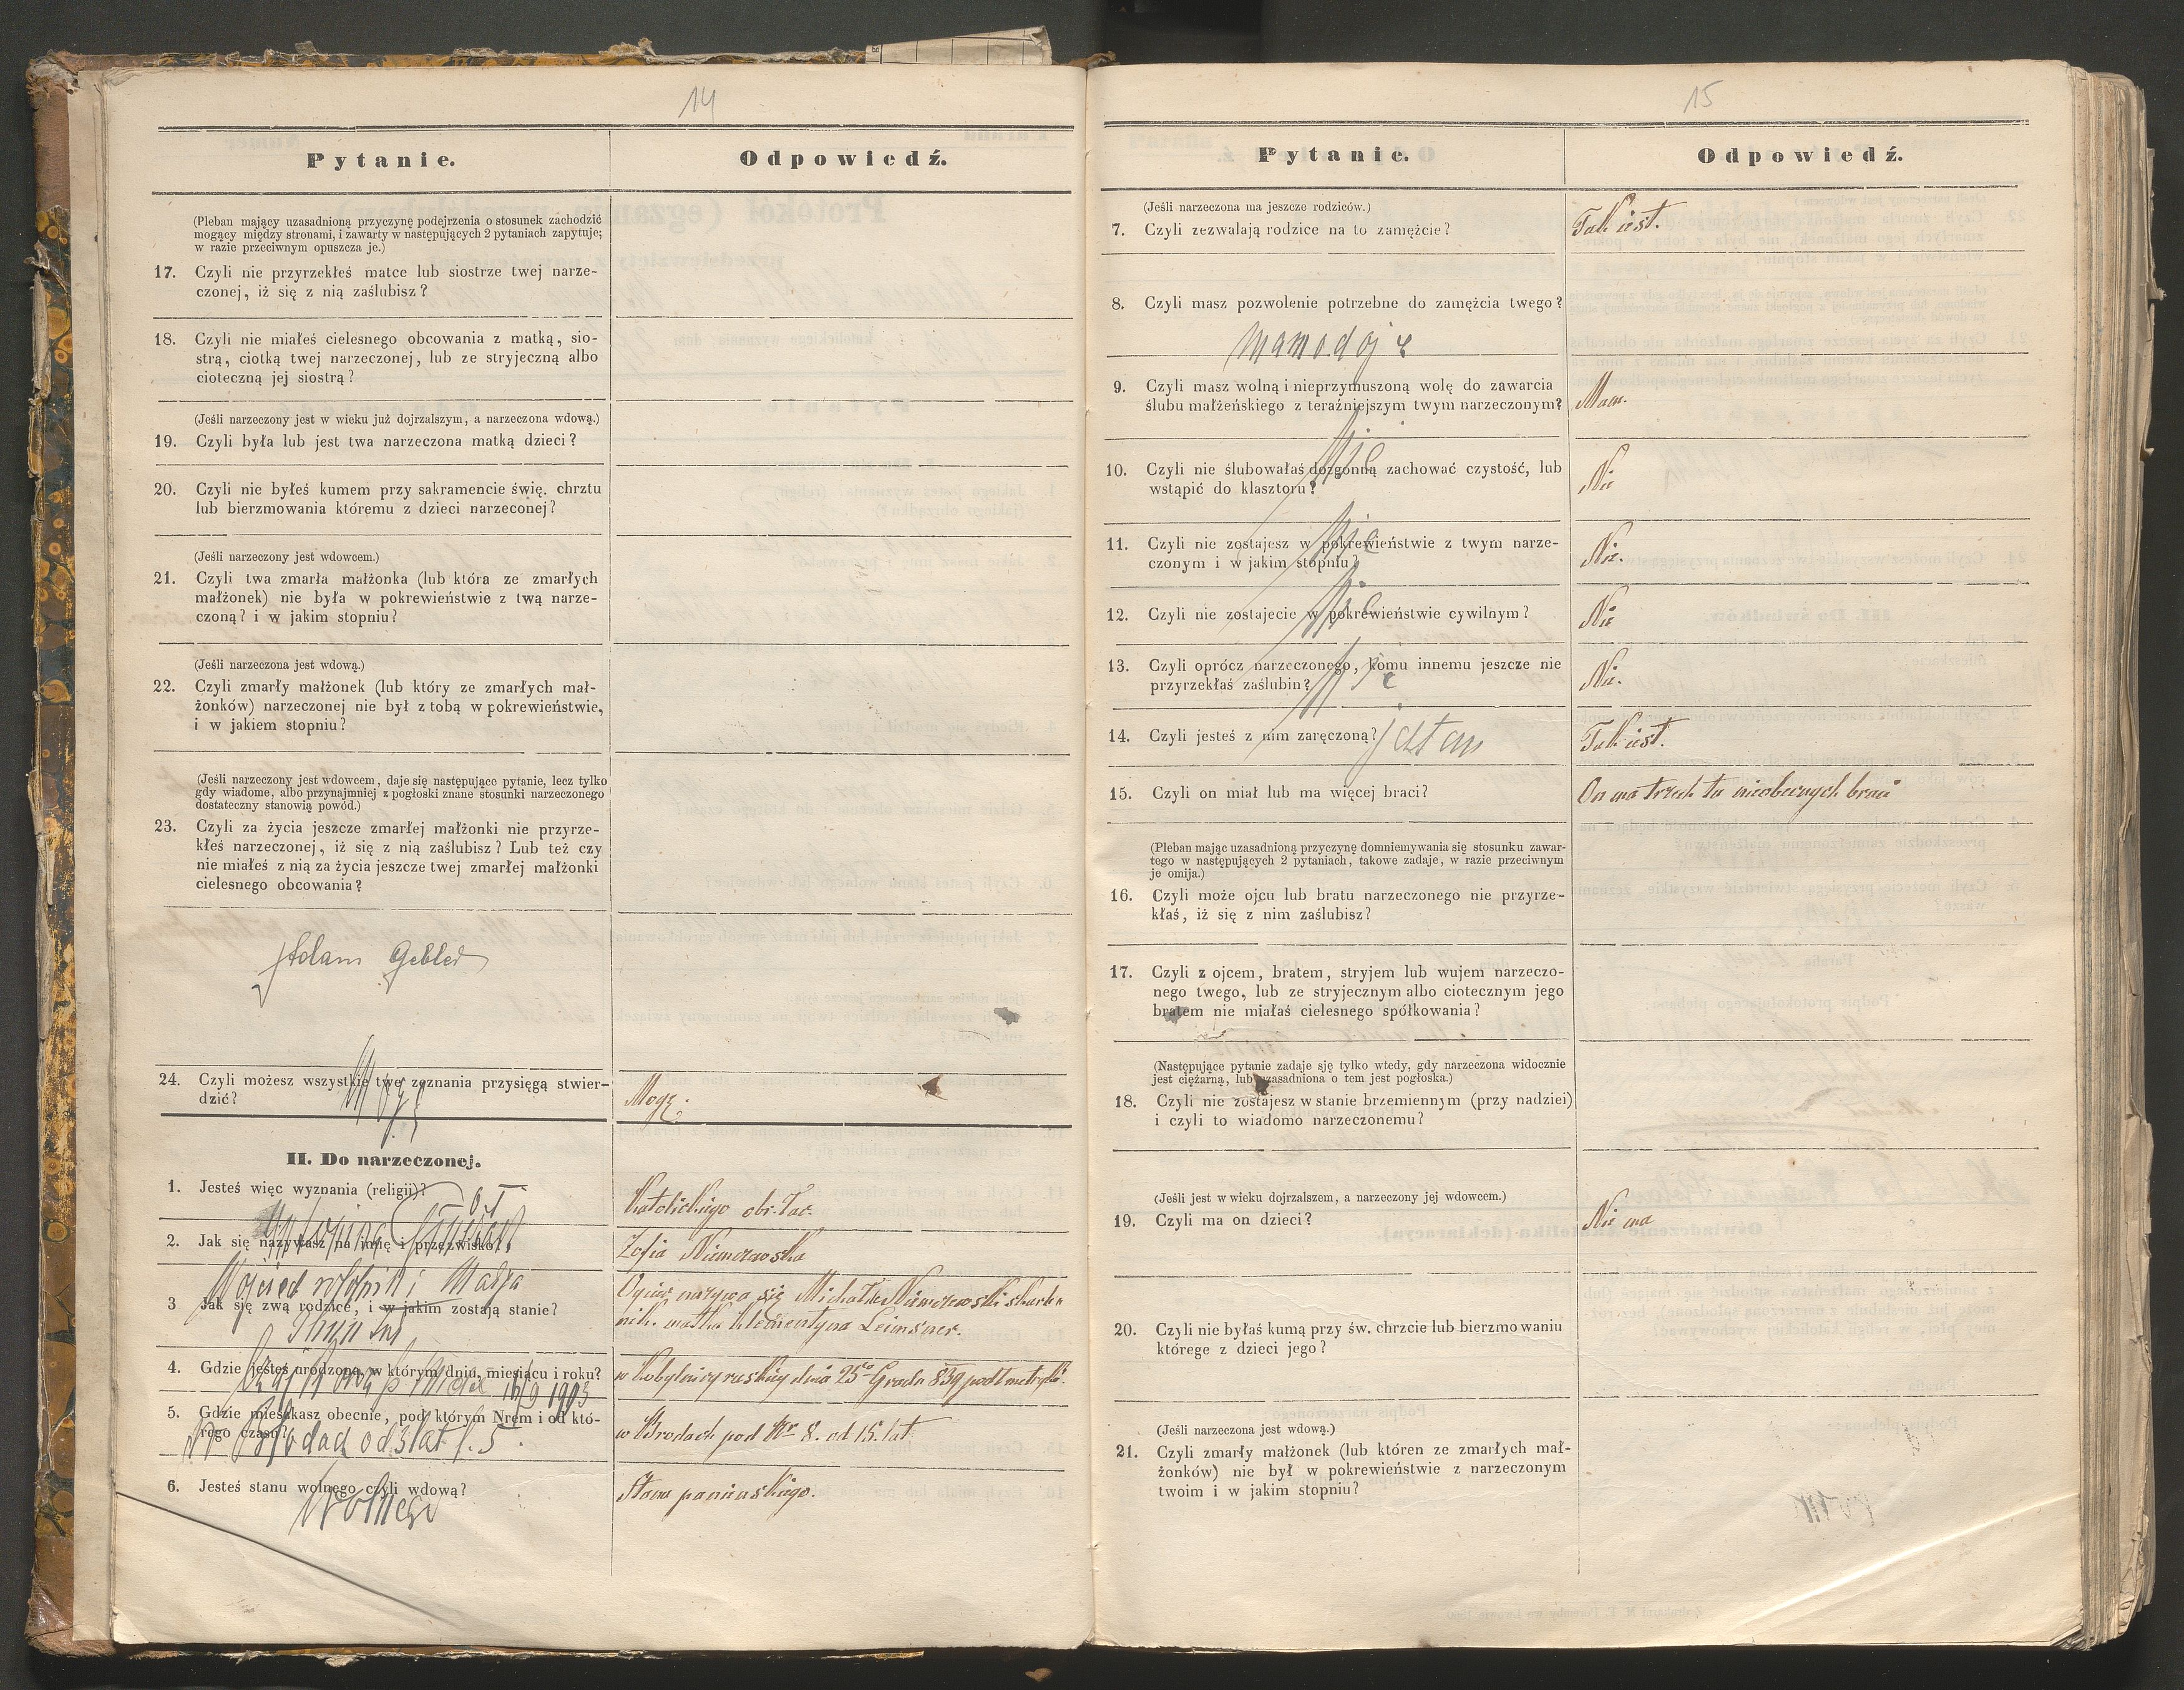 14
Pytanie.
Odpowiedź.
(Pleban mający uzasadnioną przyczynę podejrzenia o stosunek zachodzić
mogący między stronami, i zawarty w następujących 2 pytaniach zapytuje;
w razie przeciwnym opuszcza je.)
17. Czyli nie przyrzekłeś matce lub siostrze twej narze-
czonej, iż się z nią zaślubisz?
18. Czyli nie miałeś cielesnego obcowania z matką, sio-
strą, ciotką twej narzeczonej, lub ze stryjeczną albo
cioteczną jej siostrą?
(Jeśli narzeczony jest w wieku już dojrzalszym, a narzeczona wdową.)
19. Czyli była lub jest twa narzeczona matką dzieci?
20. Czyli nie byłeś kumem przy sakramencie świę. chrztu
lub bierzmowania któremu z dzieci narzeconej?
(Jeśli narzeczony jest wdowcem.)
21. Czyli twa zmarła małżonka (lub która ze zmarłych
małżonek) nie była w pokrewieństwie z twą narze-
czoną? i w jakim stopniu?
(Jeśli narzeczona jest wdową.)
22. Czyli zmarły małżonek (lub który ze zmarłych mał-
żonków) narzeczonej nie był z tobą w pokrewieństwie,
i w jakiem stopniu?
(Jeśli narzeczony jest wdowcem, daje się następujące pytanie, lecz tylko
gdy wiadome, albo przynajmniej z pogłoski znane stosunki narzeczonego
dostateczny stanowią powód.)
23. Czyli za życia jeszcze zmarłej małżonki nie przyrze-
kłeś narzeczonej, iż się z nią zaślubisz? Lub też czy
nie miałeś z nią za życia jeszcze twej zmarłej małżonki
cielesnego obcowania?
Adam Gebler
24. Czyli możesz wszystkie twe zeznania przysięgą stwier-
dzić?
Mogę
Mogę.
II. Do narzeczonej.
1. Jesteś więc wyznania (religii)?
Katolickiego obr. łac.
2. Jak się nazywasz na imię i przezwisko?
Zofia Niemczewska
3 Jak się zwą rodzice, i w jakim zostają stanie?
Ojciec nazywa się Michał Niemczewski
matka Klementyna
4. Gdzie jesteś urodzona, w którym dniu, miesiącu i roku?
16/9 1903
w Kobylnicy ruskiej dnia 25 Grud. 839 podł. metryki.
5. Gdzie mieszkasz obecnie, pod którym Nrem i od któ-
rego czasu?
od 3 lat l. 5.
w Brodach pod Nr 8. od 15. lat
6. Jesteś stanu wolnego czyli wdową?
Wolnego
Stanu panieńskiego.
15
Pytanie.
Odpowiedź.
(Jeśli narzeczona ma jeszcze rodziców.)
7. Czyli zezwalają rodzice na to zamężcie?
Tak jest.
8. Czyli masz pozwolenie potrzebne do zamężcia twego?
9. Czyli masz wolną i nieprzymuszoną wolę do zawarcia
ślubu małżeńskiego z teraźniejszym twym narzeczonym?
Mam.
10. Czyli nie ślubowałaś dozgonną zachować czystość, lub
wstąpić do klasztoru?
Nie
Nie
11. Czyli nie zostajesz w pokrewieństwie z twym narze-
czonym i w jakim stopniu?
Nie
Nie.
12. Czyli nie zostajecie w pokrewieństwie cywilnym?
Nie
Nie
13. Czyli oprócz narzeczonego, komu innemu jeszcze nie
przyrzekłaś zaślubin?
Nie
Nie.
14. Czyli jesteś z nim zaręczoną?
jestem
Tak jest.
15. Czyli on miał lub ma więcej braci?
On ma trzech tu nieobecnych braci
(Pleban mając uzasadnioną przyczynę domniemywania się stosunku zawar-
tego w następujących 2 pytaniach, takowe zadaje, w razie przeciwnym
je omija.)
16. Czyli może ojcu lub bratu narzeczonego nie przyrze-
kłaś, iż się z nim zaślubisz?
17. Czyli z ojcem, bratem, stryjem lub wujem narzeczo-
nego twego, lub ze stryjecznym albo ciotecznym jego
bratem nie miałaś cielesnego spółkowania?
(Następujące pytanie zadaje się tylko wtedy, gdy narzeczona widocznie
jest ciężarną, lub uzasadniona o tem jest pogłoska.)
18. Czyli nie zostajesz w stanie brzemiennym (przy nadziei)
i czyli to wiadomo narzeczonemu?
(Jeśli jest w wieku dojrzalszem, a narzeczony jej wdowcem.)
19. Czyli ma on dzieci?
Nie ma
20. Czyli nie byłaś kumą przy św. chrzcie lub bierzmo waniu
którege z dzieci jego?
(Jeśli narzeczona jest wdową.)
21. Czyli zmarły małżonek (lub któren ze zmarłych mał-
żonków) nie był w pokrewieństwie z narzeczonym
twoim i w jakim stopniu?